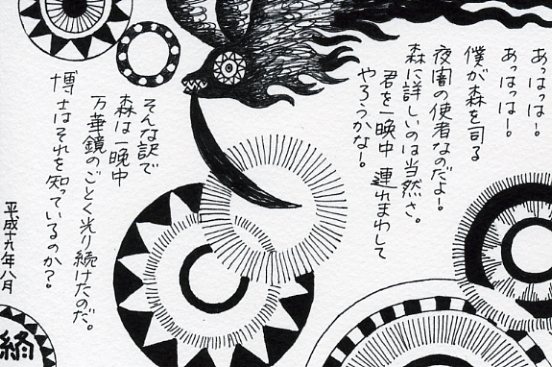 あっはっは!
あっはっは!
僕が森を司る
夜闇の使者なのだよ!
森に詳しいのは当然さ。
君を一晩中 連れまわして
やろうかな!
そんな訳で
森は一晩中
万華鏡のごとく光り続けたのだ。
博士はそれを知っているのか?
平成十九年八月
終